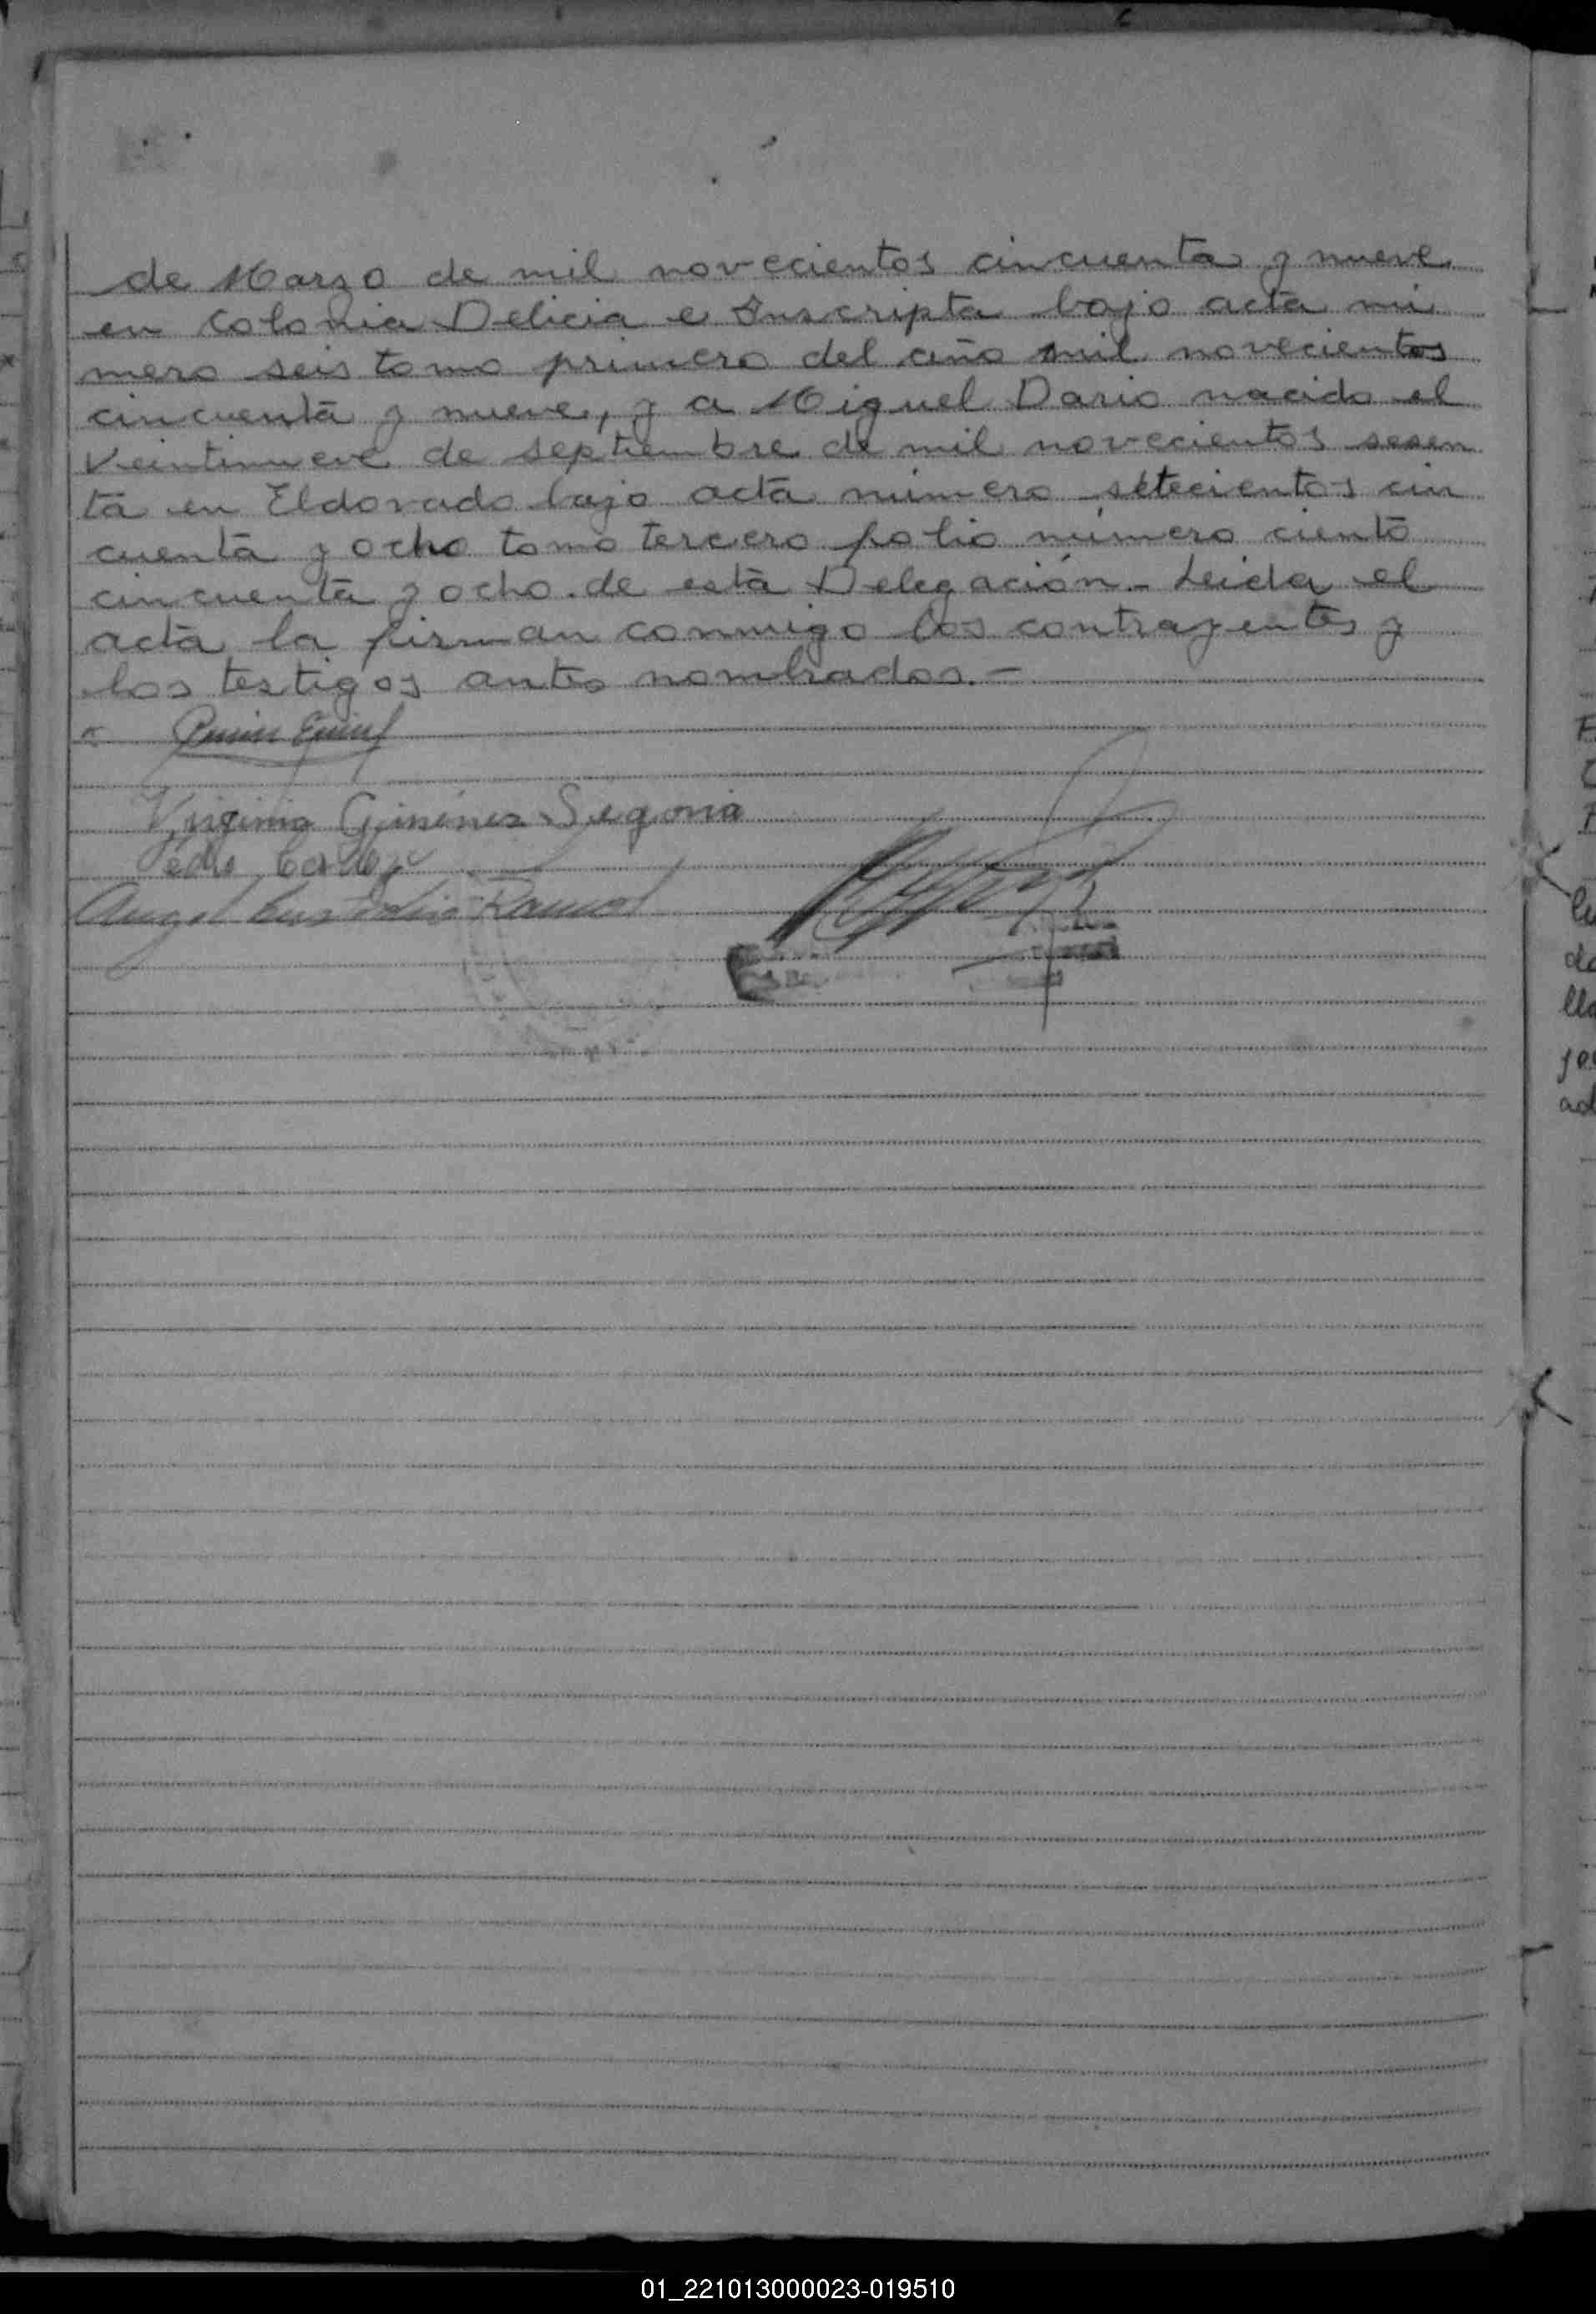 de Marzo de mil novecientos cincuenta y nueve
en Colonia Delicia e Inscripta bajo acta nú
mero seis tomo primero del año mil novecientos
cincuenta y nueve, y a Miguel Dario nacido el
Veintinueve de septiembre de mil novecientos sesen
ta en Eldorado bajo acta número setecientos cin
cuenta y ocho tomo tercero folio número ciento
cincuenta y ocho de esta Delegación - Leida el
acta la firman conmigo los contrayentes y
los testigos antes nombrados. -
Virginia Gimenez Segovia
Pedro
Angel Custodio Ramos
01_221013000023-019510